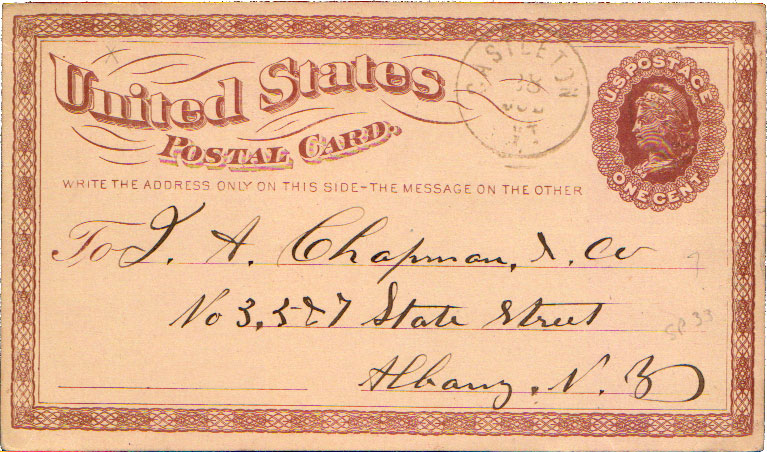 United States
POSTAL CARD.
WRITE THE ADDRESS ONLY ON THIS SIDE–THE MESSAGE ON THE OTHER
CASTLETON
VT
U.S. POSTAGE
ONE CENT
To
A. Chapman, & Co
No 3, 5 & 7 State Street
Albany, N. Y
SP 33